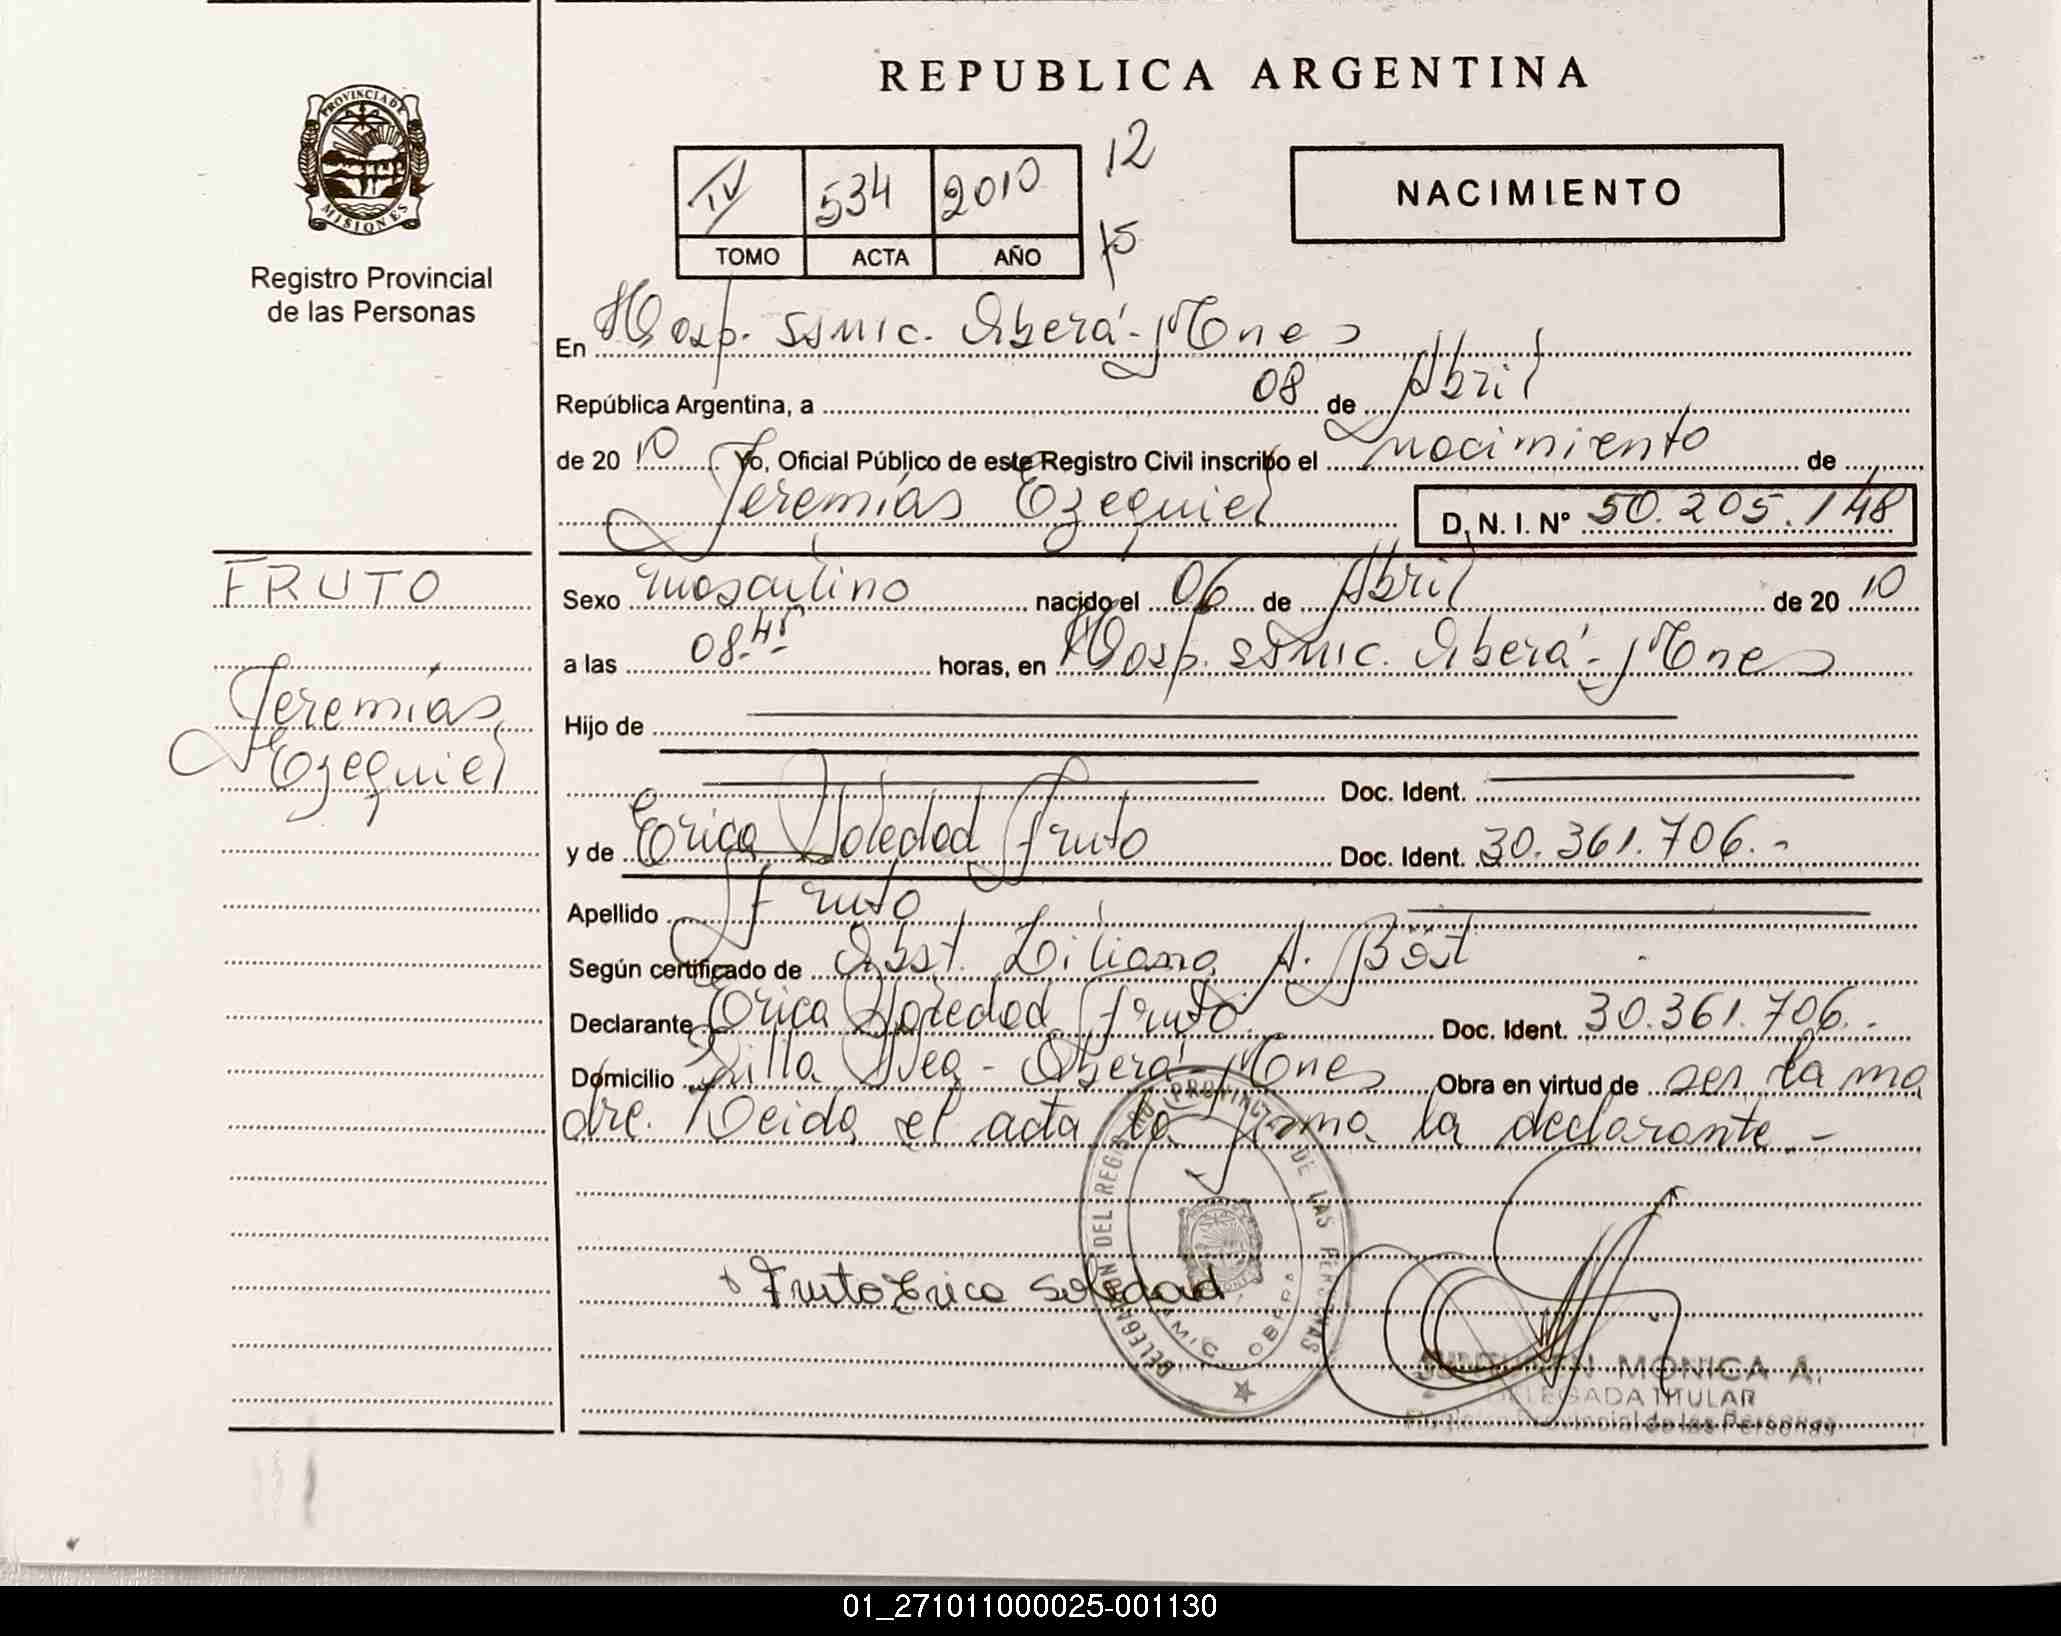 REPUBLICA ARGENTINA
PROVINCIA DE
MISIONES
Registro Provincial
de las Personas
IV 534 2010 12
TOMO ACTA AÑO 15
NACIMIENTO
En Hosp. SAMIC. Oberá - Mnes
República Argentina, a 08 de Abril
de 20 10 Yo, Oficial Público de este Registro Civil inscribo el nacimiento de
Jeremías Ezequiel D.N.I. Nº 50.205.148
FRUTO
Jeremías
Ezequiel
Sexo masculino nacido el 06 de Abril de 20 10
a las 08.45- horas, en Hosp. SAMIC. Oberá - Mnes
Hijo de
Doc. Ident.
y de Erica Soledad Fruto Doc. Ident. 30.361.706.-
Apellido Fruto
Según certificado de Obst. Liliana A. Böst
Declarante Erica Soledad Fruto Doc. Ident. 30.361.706.-
Domicilio Villa - Oberá - Mnes Obra en virtud de ser la ma
dre. Leida el acta la firma la declarante.-
Fruto Erica Soledad
DELEGACIÓN DEL REGISTRO PROVINCIAL DE LAS PERSONAS
SAMIC OBERA
MONICA A.
DELEGADA TITULAR
Registro Provincial de las Personas
01_271011000025-001130